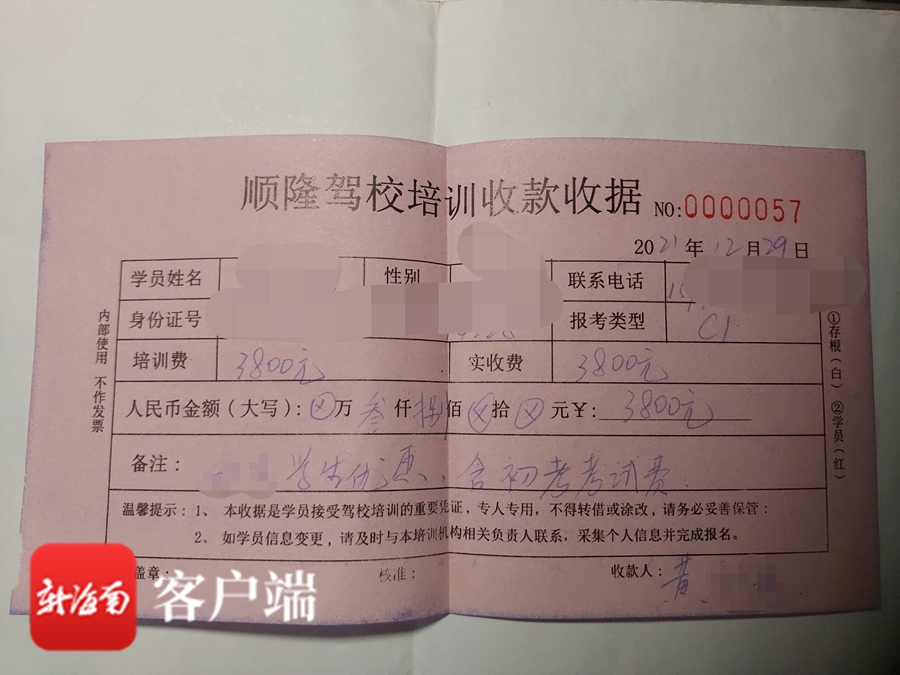 顺隆驾校培训收款收据 NO:0000057
2021年12月29日
学员姓名 性别 联系电话
身份证号 报考类型 C1
培训费 3800元 实收费 3800元
人民币金额（大写）：⊗万 叁仟 捌佰 ⊗拾 ⊗元¥: 3800元
备注： 学生优惠、含初考考试费
温馨提示：1、 本收据是学员接受驾校培训的重要凭证，专人专用，不得转借或涂改，请务必妥善保管：
2、 如学员信息变更，请及时与本培训机构相关负责人联系，采集个人信息并完成报名。
盖章： 核准： 收款人：黄
内部使用 不作发票
①存根（白） ②学员（红）
新海南 客户端